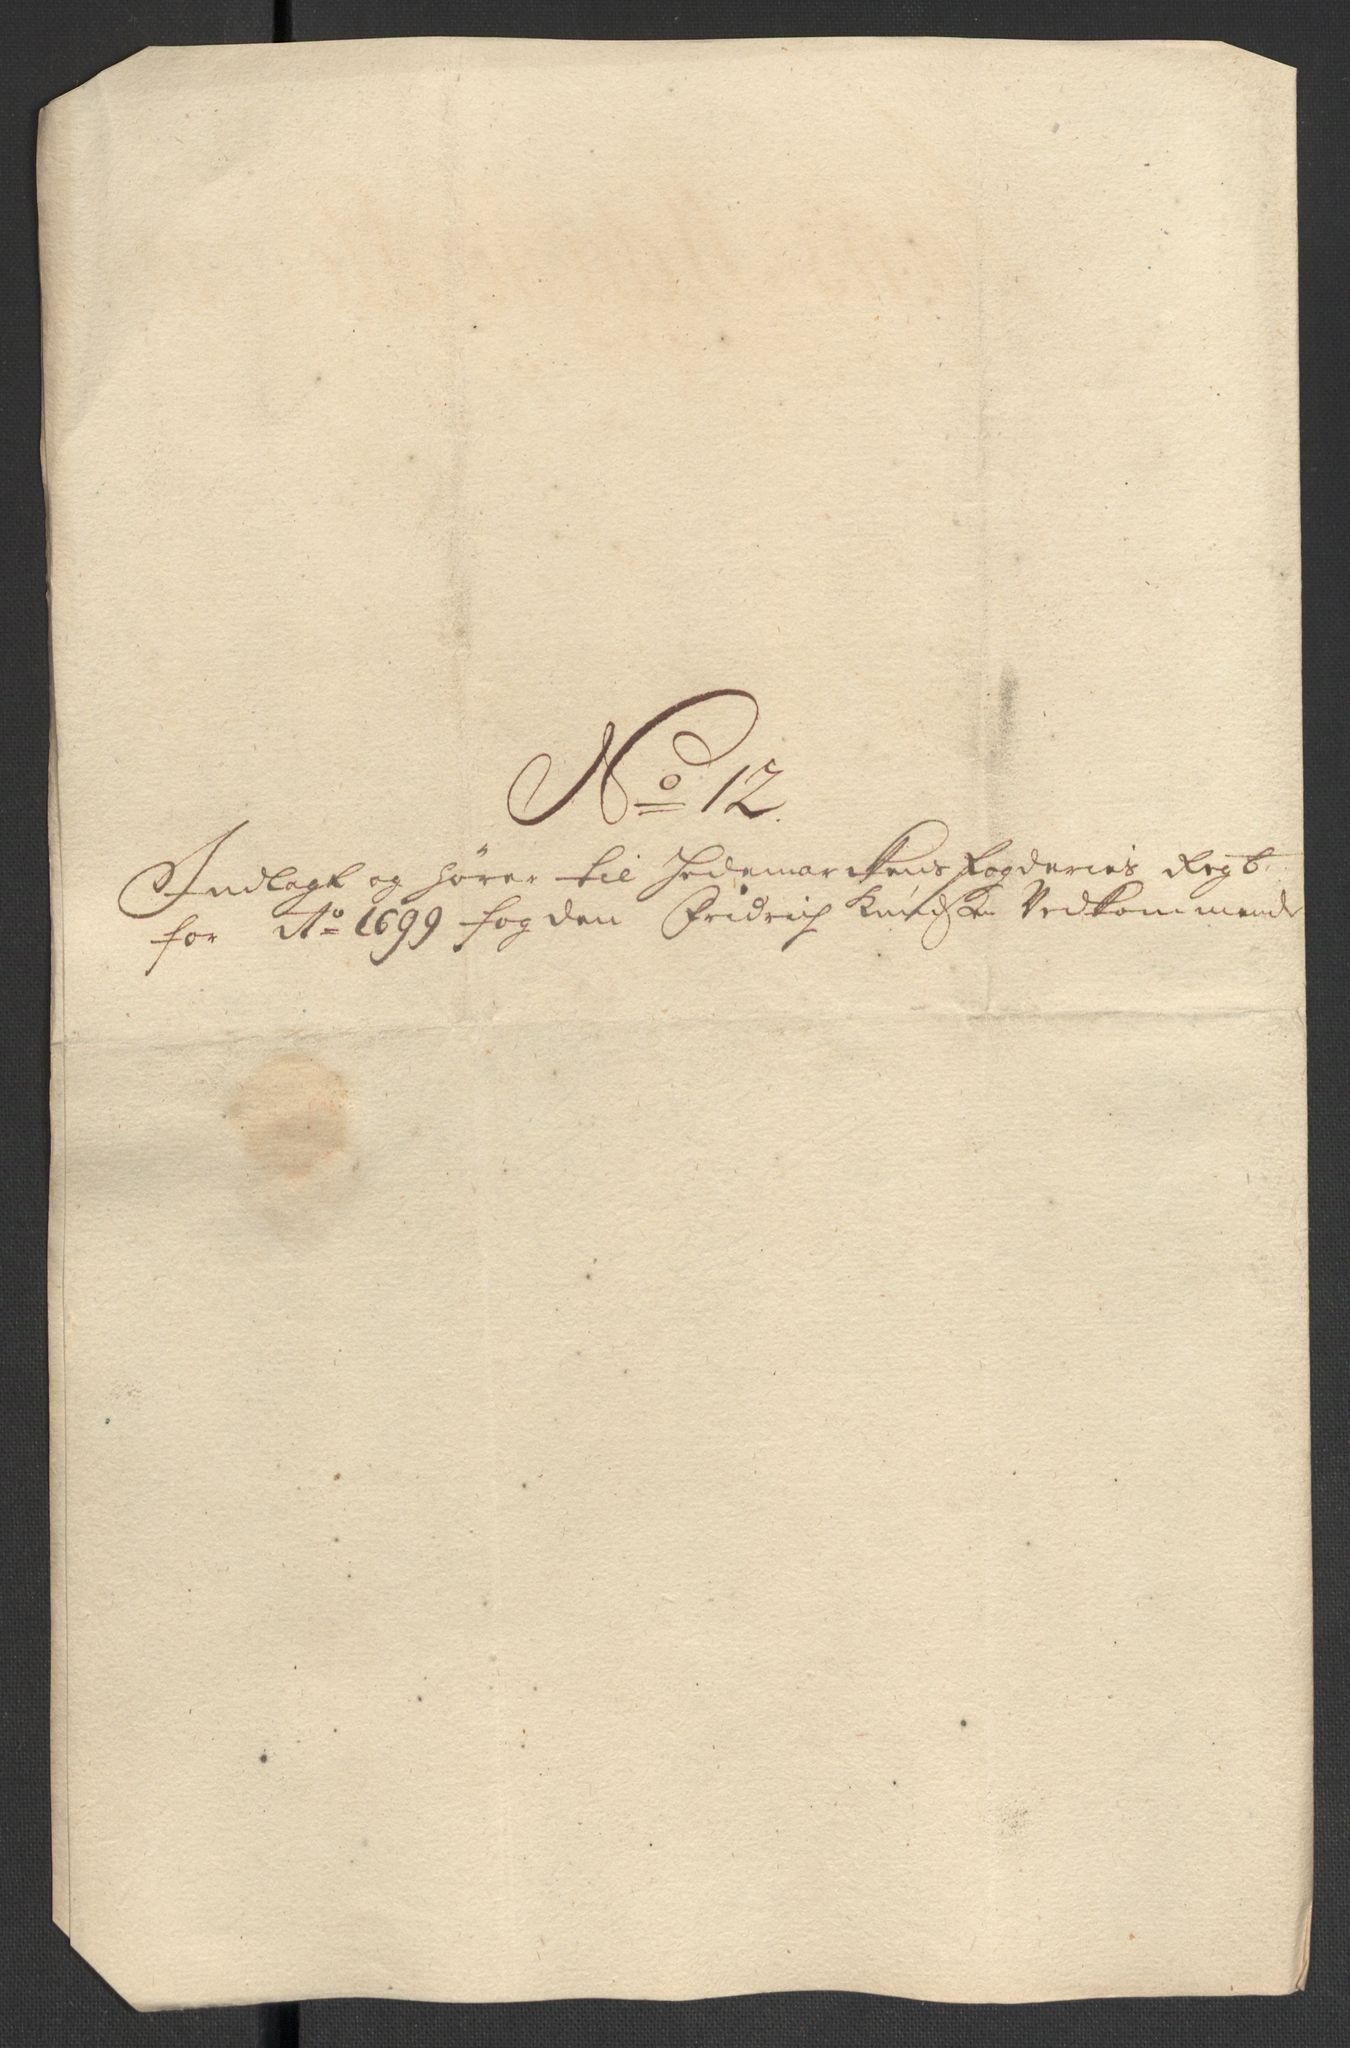 No 12.
Indlagt og hører til Hedemarckens fogderies Regt.
for Ao 1699 fogden Fridrich Knudsen Vedkommende